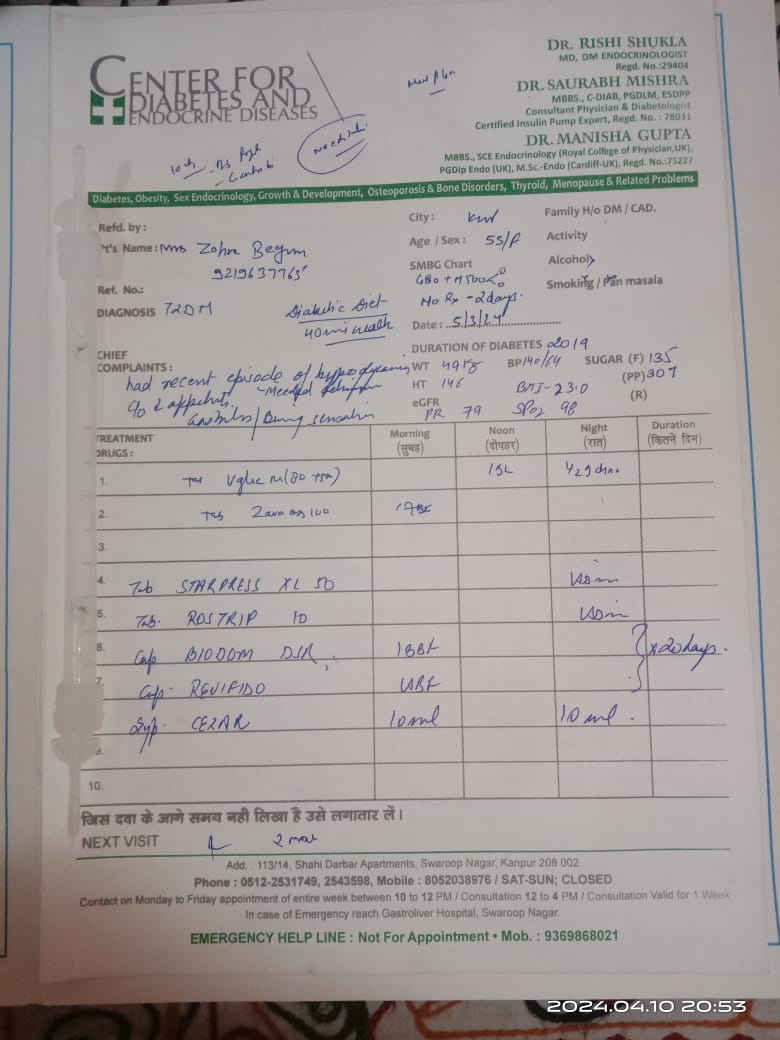 CENTER FOR
DIABETES AND
ENDOCRINE DISEASES
DR. RISHI SHUKLA
MD, DM ENDOCRINOLOGIST
Regd. No.:29404
DR. SAURABH MISHRA
MBBS., C-DIAB, PGDLM, ESDPP
Consultant Physician & Diabetologist
Certified Insulin Pump Expert, Regd. No. : 78031
DR. MANISHA GUPTA
MBBS., SCE Endocrinology (Royal College of Physician,UK),
PGDip Endo (UK), M.Sc.-Endo (Cardiff-UK), Regd. No.:75227
Diabetes, Obesity, Sex Endocrinology, Growth & Development, Osteoporosis & Bone Disorders, Thyroid, Menopause & Related Problems
Refd. by :
't's Name: Mrs Zohra Begum
Ref. No.:
DIAGNOSIS T2DM
Diabetic Diet
40 min walk
City :
Age / Sex : 55/F
SMBG Chart
No Rx - 2 days.
Date : 5/3/24
Family H/o DM / CAD.
Activity
Alcohol
Smoking / Pan masala
CHIEF
COMPLAINTS :
had recent episode of
DURATION OF DIABETES 2019
WT 49 kg BP 140/64 SUGAR (F) 135
HT 146 BMI - 23.0 (PP) 307
eGFR (R)
PR 79 SPO2 98
TREATMENT
DRUGS :
Morning
(सुबह)
Noon
(दोपहर)
Night
(रात)
Duration
(कितने दिन)
1. Tab
2. Tab 100
3.
4. Tab STARPRESS XL 50
5. Tab. ROSTRIP 10
6. Cap BIODOM DSR 1BBF x 20 days.
7. Cap. REVIFIDO 1BBF
Syp. CEZAR 10 ml 10 ml.
9.
10.
जिस दवा के आगे समय नही लिखा है उसे लगातार लें।
NEXT VISIT
Add. : 113/14, Shahi Darbar Apartments, Swaroop Nagar, Kanpur 208 002
Phone : 0512-2531749, 2543598, Mobile : 8052038976 / SAT-SUN; CLOSED
Contact on Monday to Friday appointment of entire week between 10 to 12 PM / Consultation 12 to 4 PM / Consultation Valid for 1 Week
In case of Emergency reach Gastroliver Hospital, Swaroop Nagar.
EMERGENCY HELP LINE : Not For Appointment • Mob. : 9369868021
2024.04.10 20:53